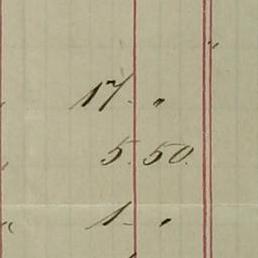 "
17 "
5. 50.
1 "